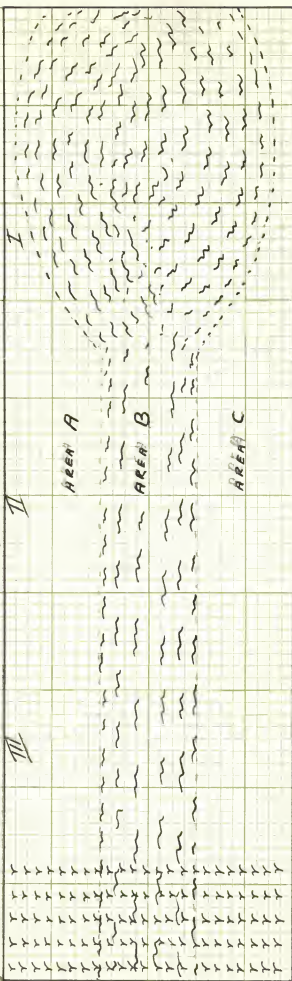 III II I
AREA A
AREA B
AREA C